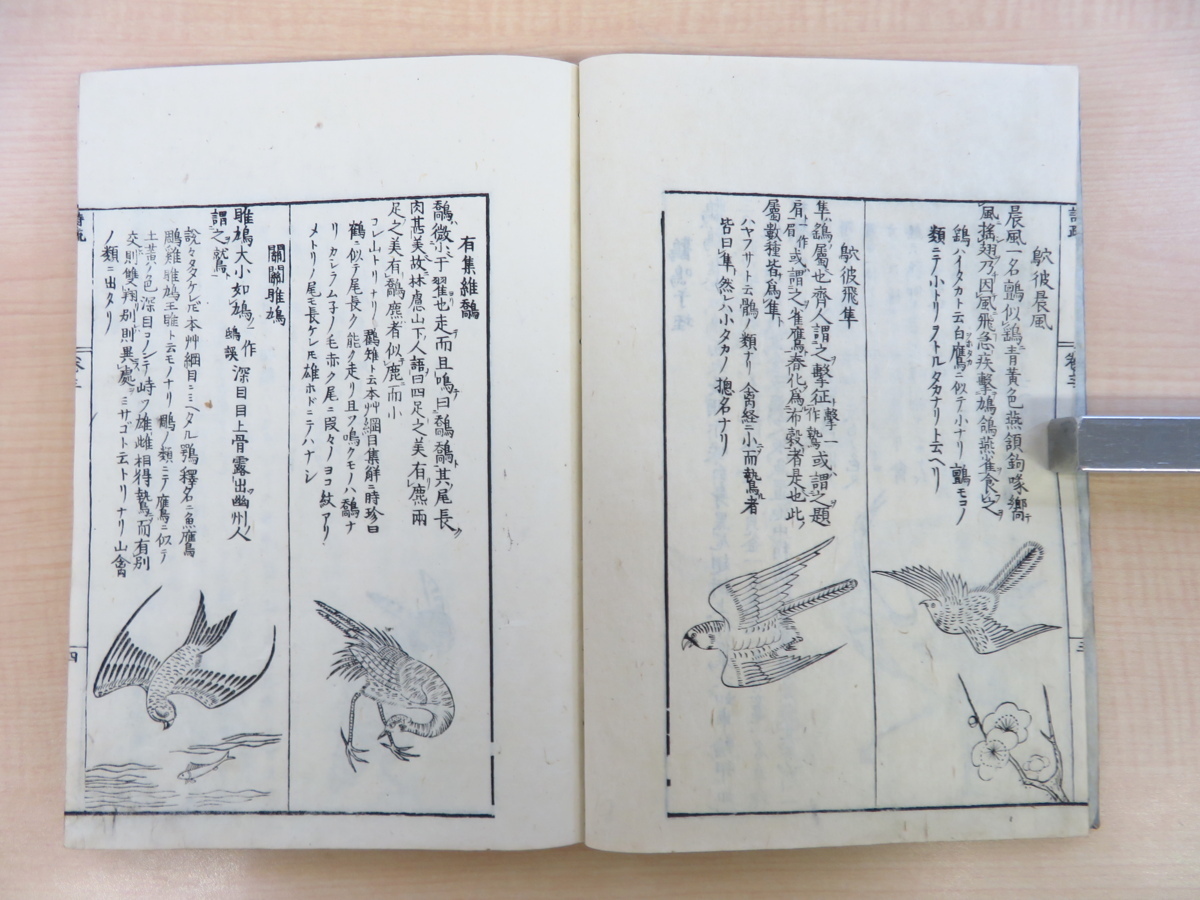 鴥彼晨風
晨風一名鸇似鷂青黃色燕頷鉤喙嚮
風搖翅乃因風飛急疾擊鳩鴿燕雀食之
鷂ハイタカト云白鷹ニ似テ小ナリ鸇モコノ
類ニテ小トリヲトルタカナリト云ヘリ
鴥彼飛隼
隼鷂屬也齊人謂之擊征擊一作鷙或謂之題
肩肩一作𢨪或謂之雀鷹春化為布穀者是也此
屬數種皆為隼
ハヤフサト云鶻ノ類ナリ禽経ニ小而鷙者
皆曰隼然レハ小タカノ摠名ナリ
有集維鷮
鷮微小于翟也走而且鳴曰鷮鷮其尾長
肉甚美故林慮山下人語曰四足之美有麃兩
足之美有鷮麃者似鹿而小
コレ山トリナリ鸐雉ト云本艸綱目集解ニ時珍曰
鶴ニ似テ尾長ク能ク走リ且ツ鳴クモノハ鷮ナ
リカシラム子ノ毛赤ク尾ニ段々ノヨコ紋アリ
メトリノ尾モ長ケレ𪜈雄ホドニテハナシ
關關雎鳩
雎鳩大小如鳩一作鴟誤深目目上骨露出幽州人
謂之鷲
說々タタケレ𪜈本艸綱目ニミヘタル鶚釋名ニ魚鷹
鵰雞雎鳩王雎ト云モノナリ鵰ノ類ニテ鷹ニ似テ
土黃ノ色深目コノンテ峙ツ雄雌相得鷙而有別
交則雙翔別則異處ニミサゴト云トリナリ山禽
ノ類ニ出タリ
卷三
三
四